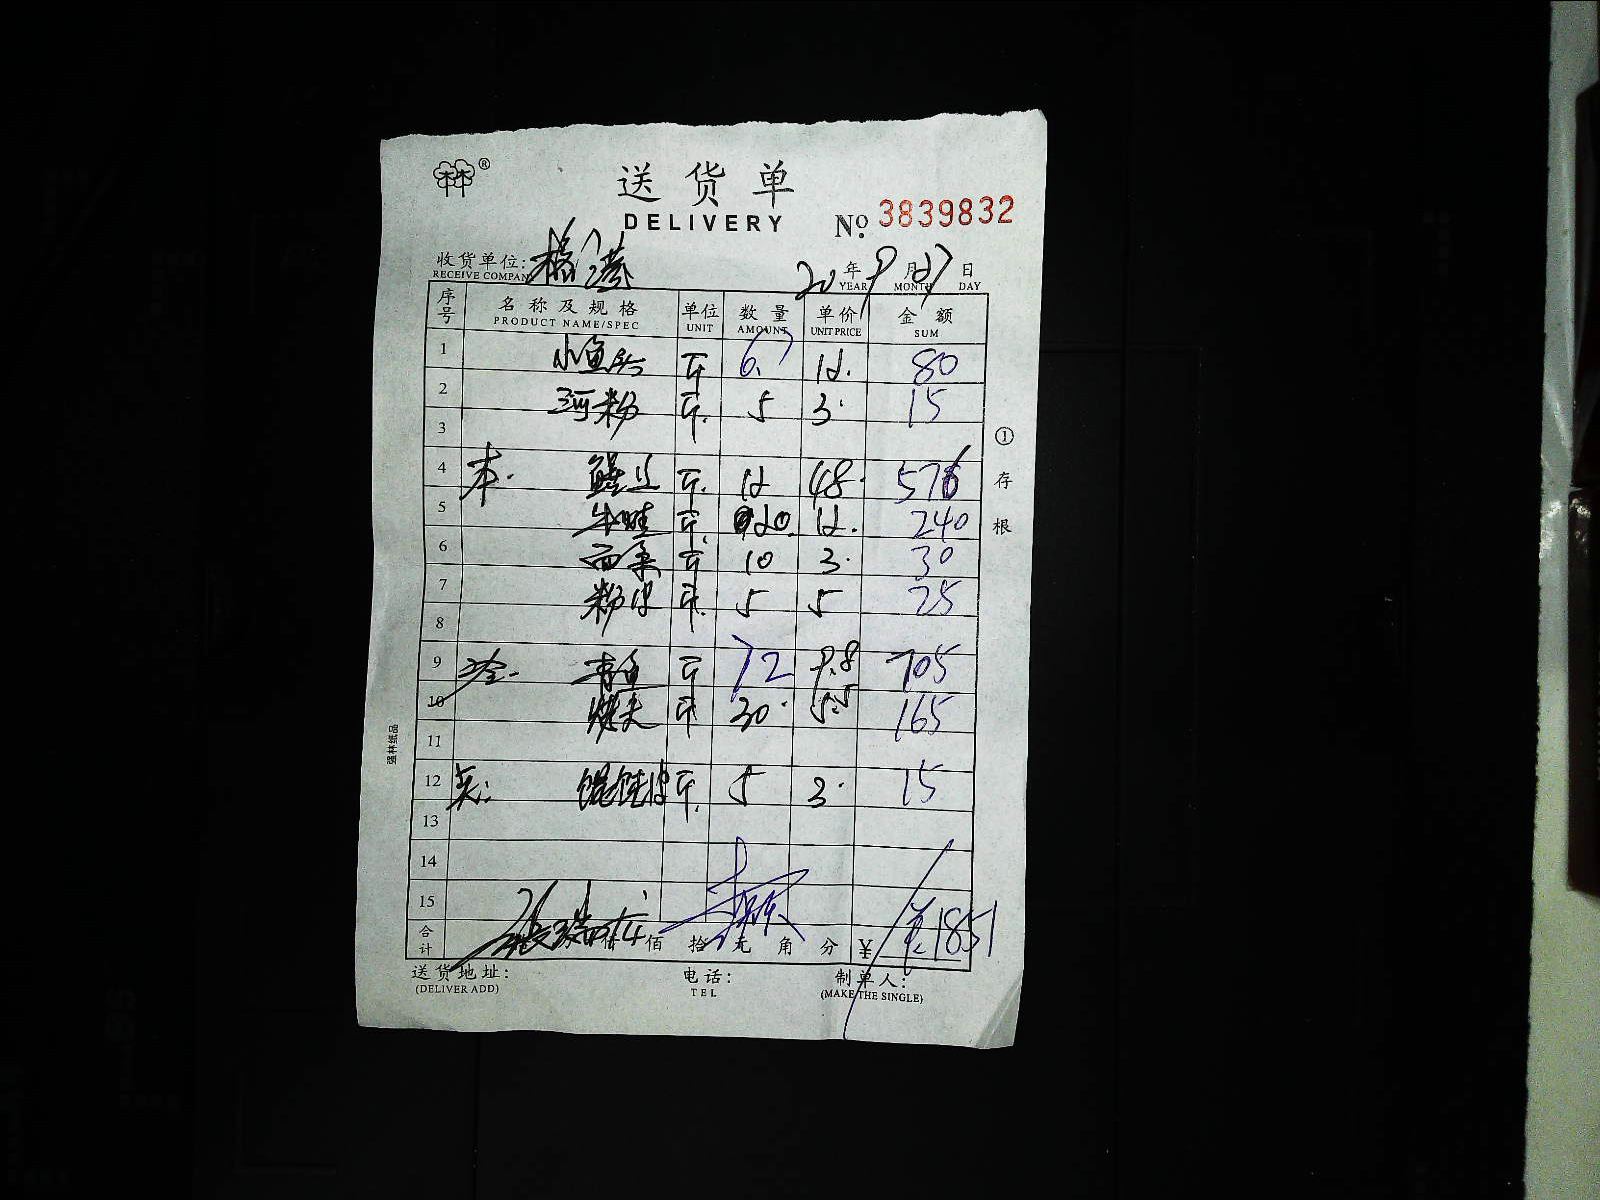 ®
送货单
DELIVERY
No. 3839832
收货单位:
RECEIVE COMPAN
20 年 9 月 27 日
YEAR MONTH DAY
序号 名称及规格 单位 数量 单价 金额
PRODUCT NAME/SPEC UNIT AMOUNT UNIT PRICE SUM
1 小鱼头 斤 6.7 12. 80
2 河粉 斤. 5 3. 15
3
4 本. 鳝丝 斤. 12 48. 576
5 牛蛙 斤. 20. 12. 240
6 面条 斤 10 3. 30
7 粉皮 斤. 5 5 25
8
9 青鱼 斤 72 9.8 705
10 烤夫 斤 30. 5.5 165
11
12 馄饨皮 斤. 5 3. 15
13
14
15
合计 佰 拾 元 角 分 ¥ 1851
送货地址: 电话: 制单人:
(DELIVER ADD) TEL (MAKE THE SINGLE)
①存根
强林纸品